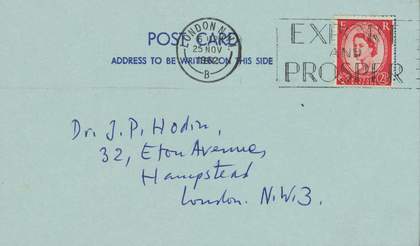 POST CARD
ADDRESS TO BE WRITTEN ON THIS SIDE
LONDON N.W.
25 NOV
1962
B
E R
AND
PROSPER
Dr. J. P. Hodin,
32, Eton Avenue,
Hampstead
London. N.W.3.